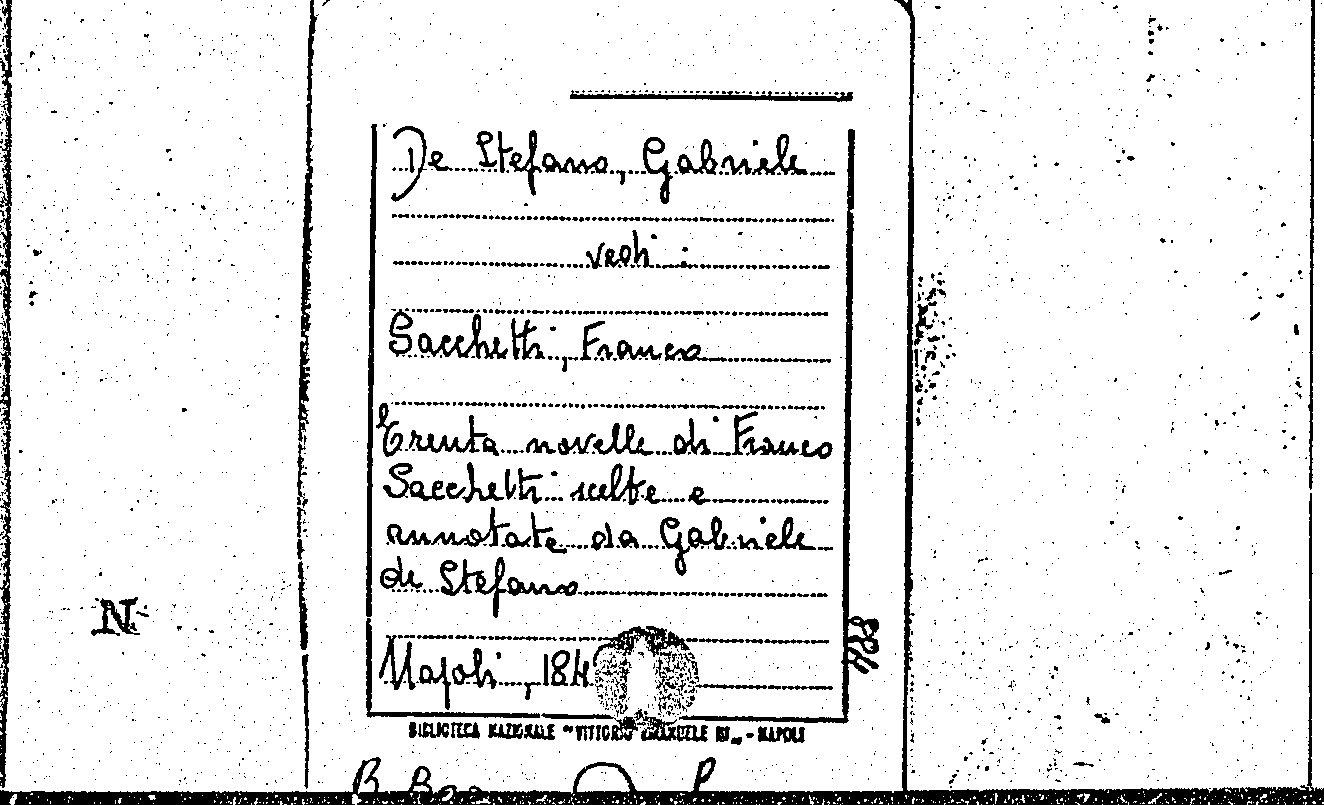 De Stefano, Gabriele
vedi :
Sacchetti, Franco
Trenta novelle di Franco
Sacchetti scelte e
annotate da Gabriele
de Stefano
Napoli, 184
884
N.
BIBLIOTECA NAZIONALE "VITTORIO EMANUELE III" - NAPOLI